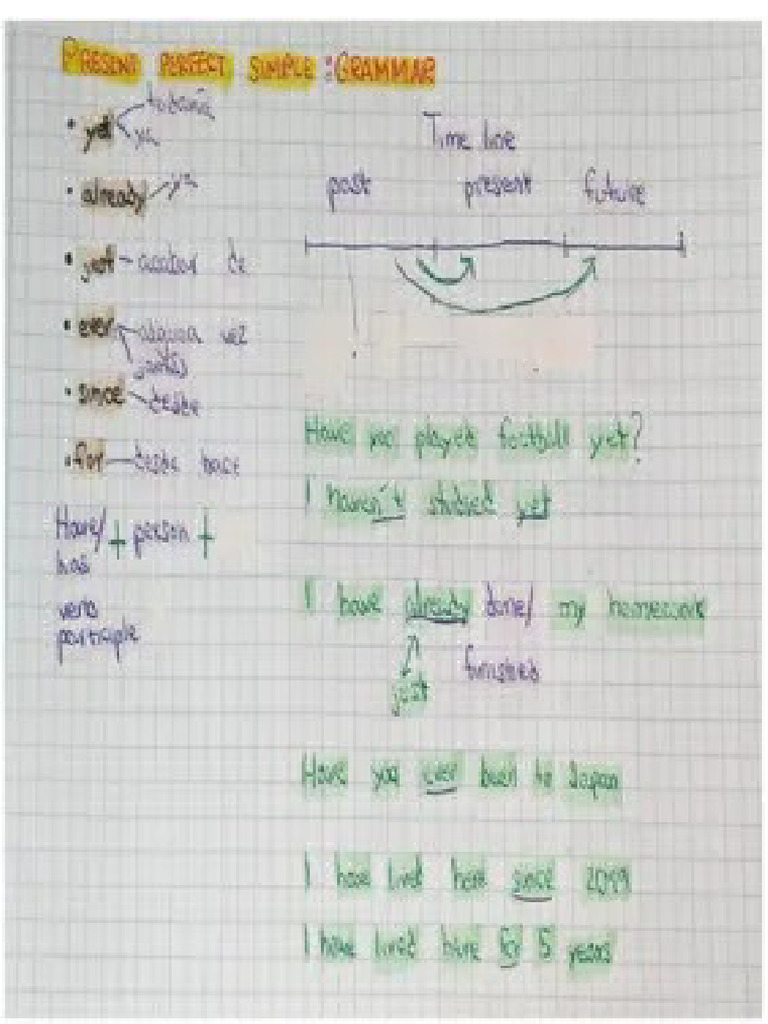 PRESENT PERFECT SIMPLE: GRAMMAR
• yet todavía
ya
• already ya
• just - acabar de
• ever alguna vez
jamás
• since desde
• for desde hace
Have/has + person +
verb participle
Time line
past present future
Have you played football yet?
I haven't studied yet
I have already done/ my homework
just finished
Have you ever been to Japan
I have lived here since
I have lived here for 5 years